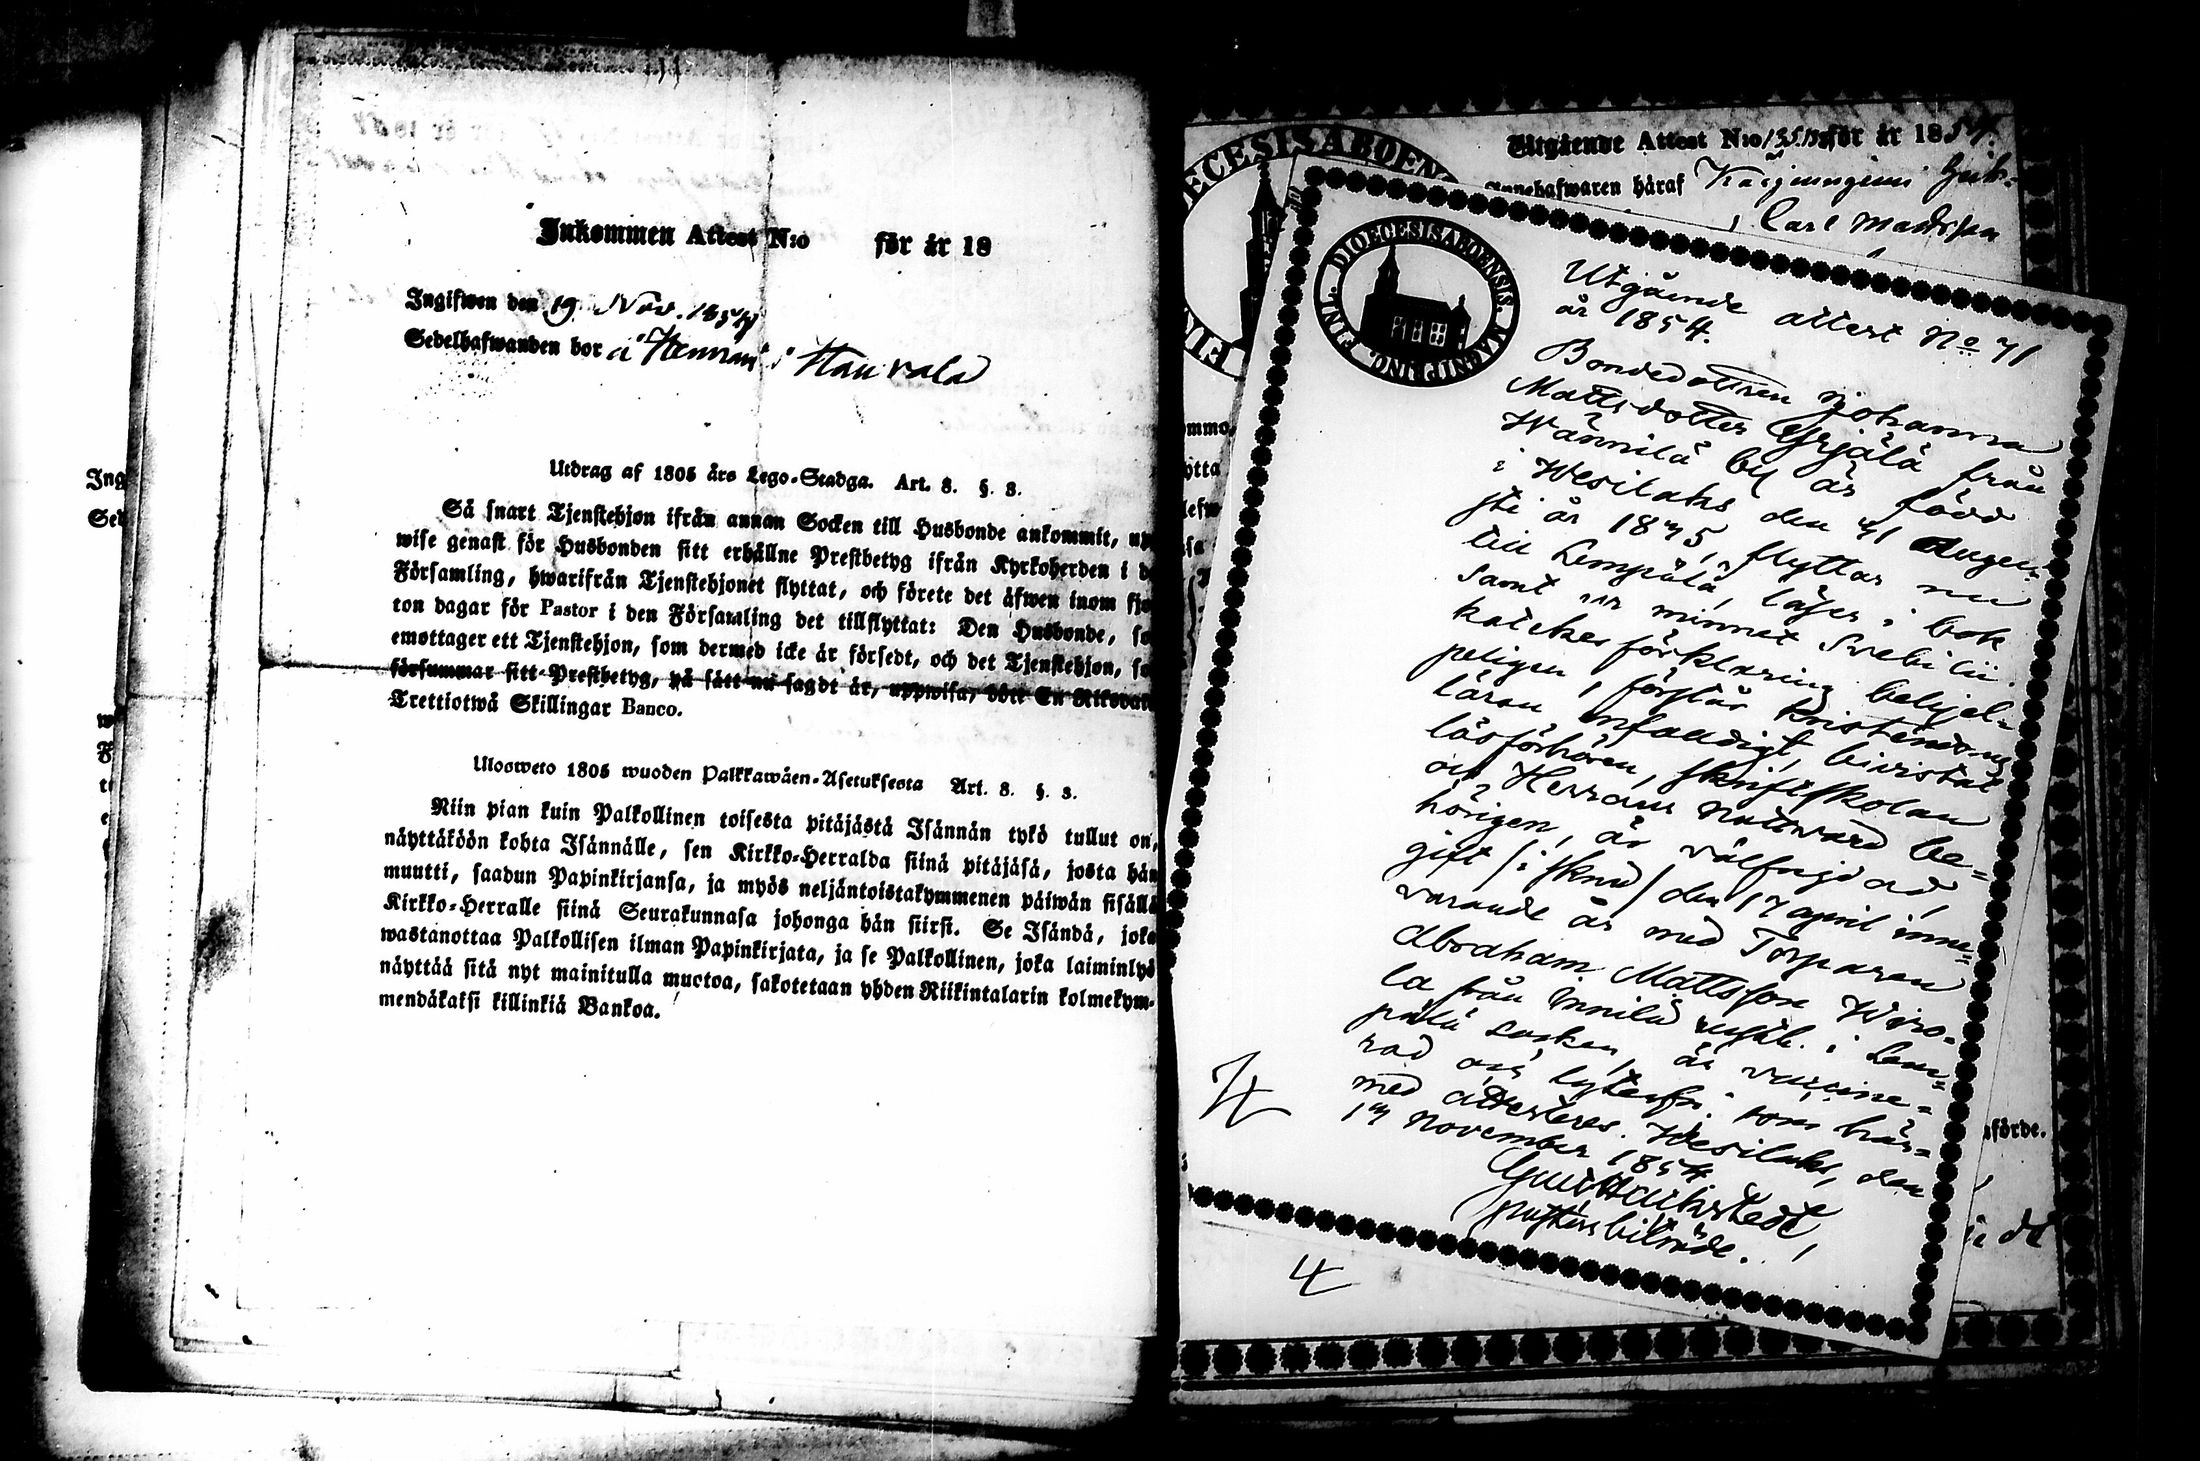 Inkommen Attest N:o för år 18
Ingifwen den 19 Nov. 1854
Sedelhafwanden bor å Hemmari i Hauvala
Utdrag af 1805 års Lego-Stadga. Art. 8. §. 3.
Så snart Tjenstehjon ifrån annan Socken till Husbonde ankommit, up
wise genast för Husbonden sitt erhållne Prestbetyg ifrån Kyrkoherden i d
Församling, hwarifrån Tjenstehjonet flyttat, och förete det äfwen inom fjo
ton dagar för Pastor i den Församling det tillflyttat: Den Husbonde, so
emottager ett Tjenstehjon, som dermed icke är försedt, och det Tjenstehjon, so
försummar sitt Prestbetyg, på sätt nu sagdt är, uppwisa, böte En Riksdal
Trettiotwå Skillingar Banco.
Ulosweto 1805 wuoden Palkkawäen-Asetuksesta Art. 8. §. 3.
Niin pian kuin Palkollinen toisesta pitäjästä Isännän tykö tullut on,
näyttäköön kohta Isännälle, sen Kirkko-Herralda siinä pitäjäsä, josta hän
muutti, saadun Papinkirjansa, ja myös neljäntoistakymmenen päiwän sisällä
Kirkko-Herralle siinä Seurakunnasa johonga hän siirsi. Se Isändä, joka
wastanottaa Palkollisen ilman Papinkirjata, ja se Palkollinen, joka laiminlyö
näyttää sitä nyt mainitulla muotoa, sakotetaan yhden Riikintalarin kolmekym-
mendäkaksi killinkiä Bankoa.
Ing
Sed
DIOECESIS ABOEN
Utgående Attest N:o för år 1854.
Innehafwaren häraf
Carl Mattsson
DIOECESIS ABOENSIS. MAGNI PRINC. FINL.
Utgående attest No 71
år 1854.
Bondedottren Johanna
Mattsdotter Yrjälä från
Wännilä by är född
i Wesilaks den 31 Augu-
sti år 1835, flyttar nu
till Lempälä, läser i bok
samt ur minnet Svebilii
katekes förklaring behjel-
peligen, förstår kristendoms
läran enfaldigt, bivistat
läsförhören, skriftskolan
och Herrans nattvard be-
hörigen, är välfrejdad,
gift /: sknd / den 17 april inne-
varande år med Torparen
Abraham Mattsson Wiro-
la från Innilä i Lem-
pälä socken, är vaccine-
rad och lytesfri; som här-
med attesteres. Wesilaks, den
17 November 1854
pastors biträde.
förde.